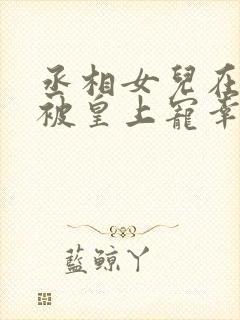 丞相女兒在
被皇上寵幸
藍鯨丫